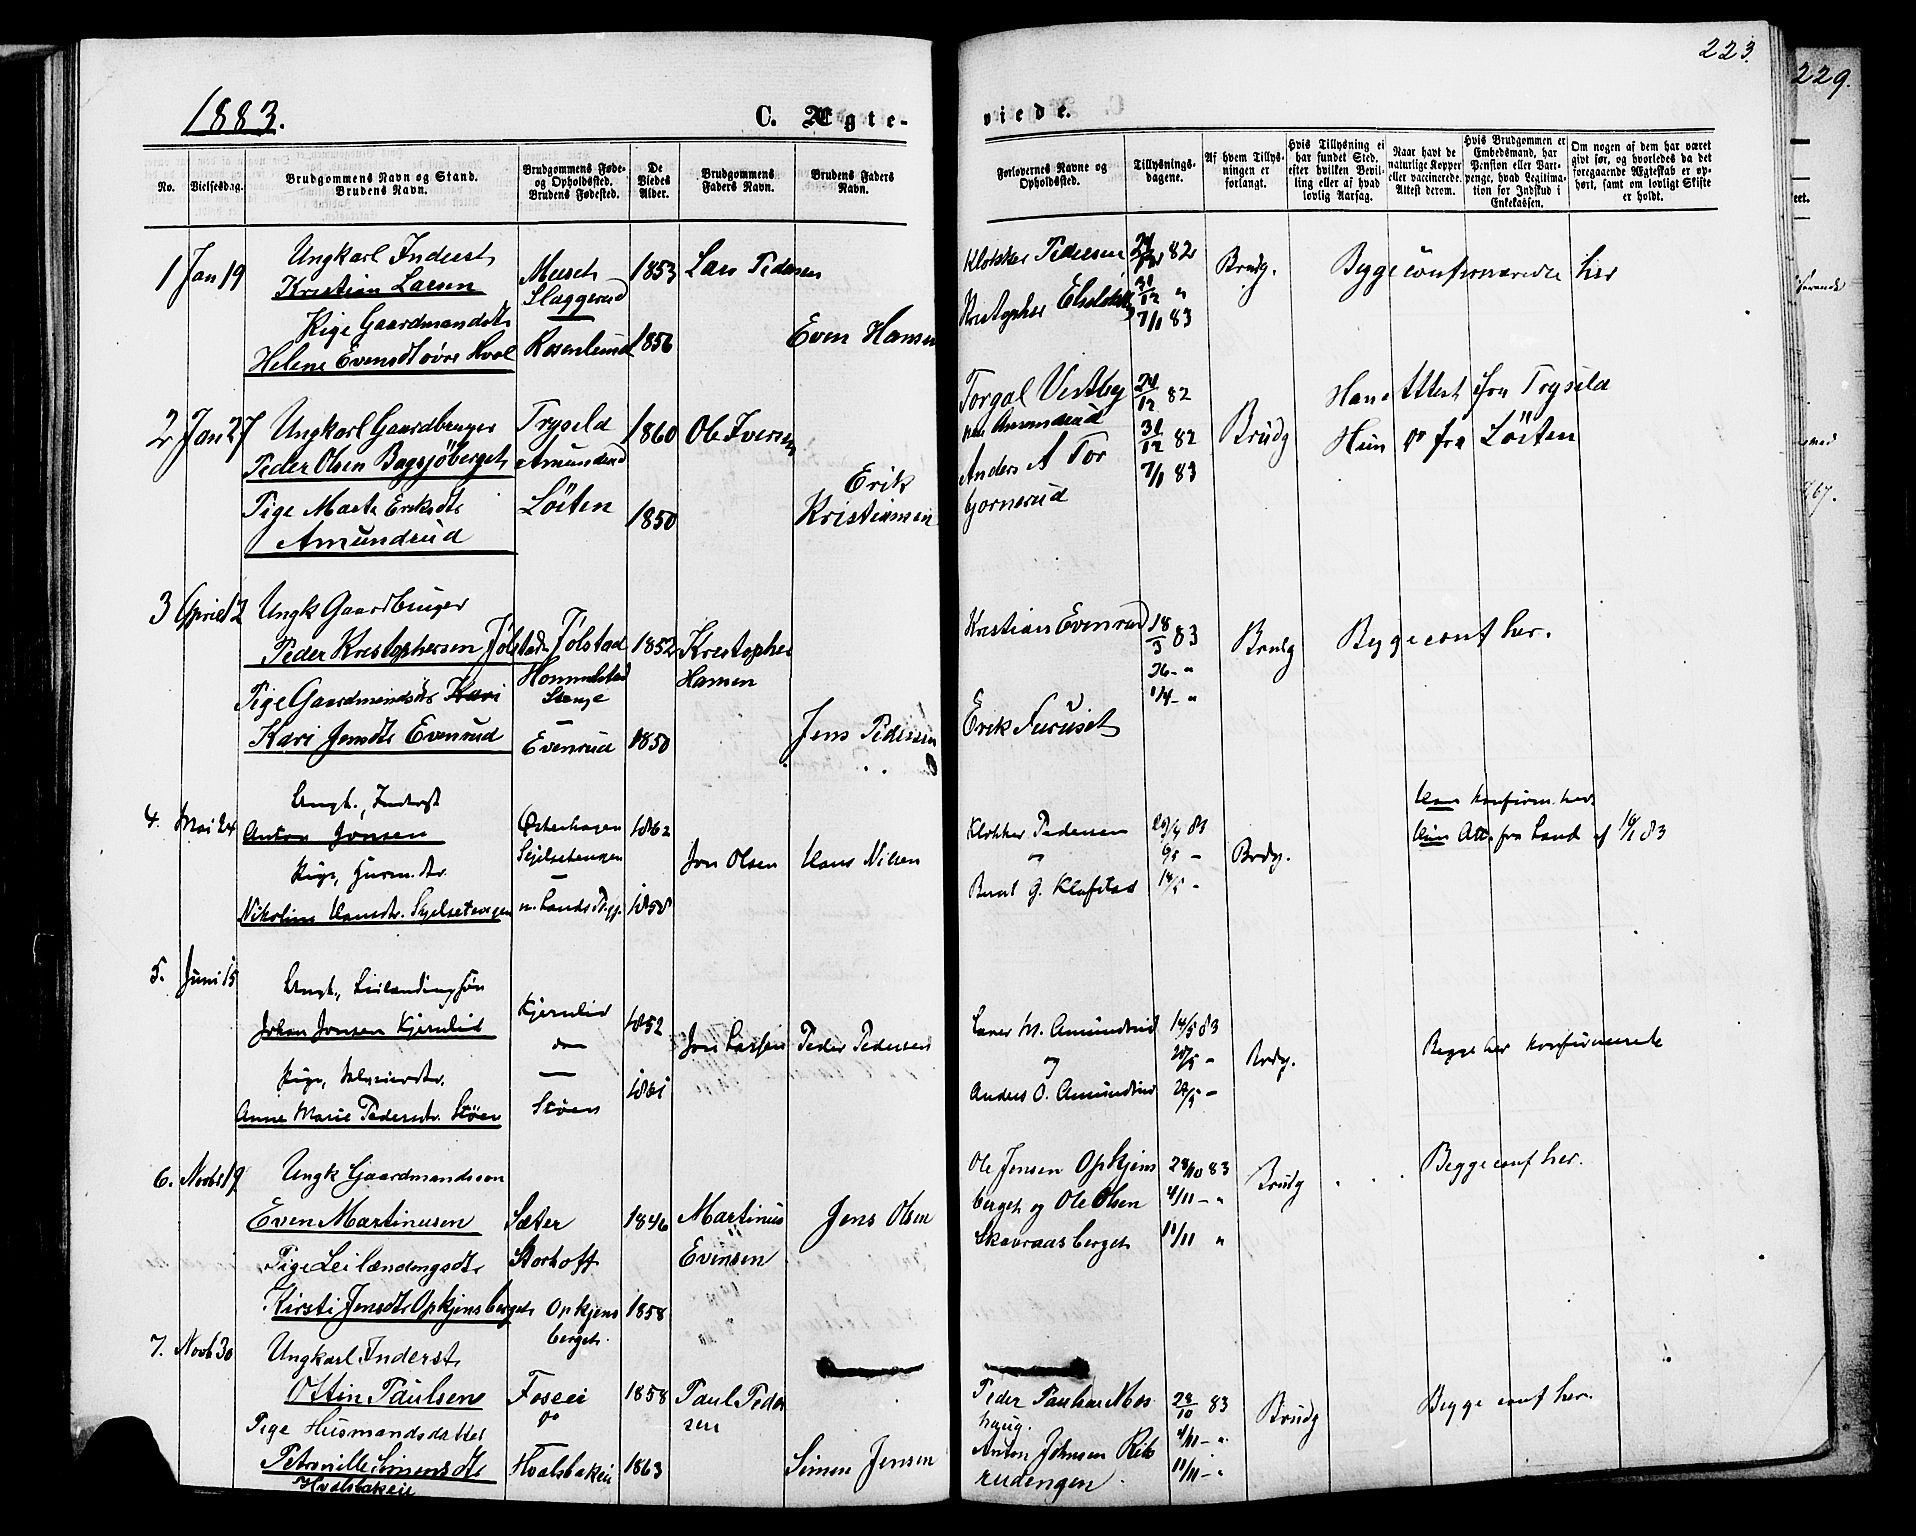 223.
229.
1883.
C. Ægte-
viede.
No.
Vielsesdag.
Brudgommens Navn og Stand.
Brudens Navn.
Brudgommens Føde-
og Opholdssted.
Brudens Fødested.
De
Viedes
Alder.
Brudgommens
Faders Navn.
Brudens Faders
Navn.
Forlovernes Navne og
Opholdssted.
Tillysnings-
dagene.
Af hvem Tillys-
ningen er
forlangt.
Hvis Tillysning ei
har fundet Sted,
efter hvilken Bevil-
ling eller af hvad
lovlig Aarsag.
Naar havt de
naturlige Kopper
eller vaccinerede.
Attest derom.
Hvis Brudgommen er
Embedsmand, har
Pension eller Vart-
penge, hvad Legitima-
tion for Indskud i
Enkekassen.
Om nogen af dem har været
givt før, og hvorledes da det
foregaaende Ægteskab er op-
hørt, samt om lovligt Skifte
er holdt.
1 Jan 19
Ungkarl Inderst
Kristian Larsen
Pige Gaardmandsdtr
Helene Evensdt øvre Hval
Slaggerud
Rosenlund
1853
1856
Lars Pedersen
Even Hansen
Klokker Pedersen
Kristopher
31/12 "
7/1 83
Brudg.
Begge confirmerede her
2 Jan 27
Ungkarl Gaardbruger
Peder Olsen Bagsjöberget
Pige Marte Eriksdtr
Amundrud
Trysild
Amundrud
Löiten
1860
1850
Ole Iversen
Erik
Kristiansen
Torgal Vestby
Anders A Tor
bjornerud
82
31/12 82
7/1 83
Brudg
Han Attest fra Trysild
Hun do fra Löiten
3 April 12
Ungk Gaardbruger
Peder Kristophersen Jølstad
Pige Gaardmandsdtr Kari
Kari Jensdtr Evenrud
Jølstad
Stange
Evenrud
1852
1850
Kristopher
Hansen
Jens Pedersen
Kristian Evenrud
Erik Furuset
18/3 83
26- "
1/4- "
Brudg
Begge conf her.
4. Mai 24
Ungk., Inderst
Anton Jonsen
Pige, Husm.dtr.
Nikoline Hansdtr. Sejelsetengen
Østerhagen
Sejelsetengen
n. Lands Pgj.
1862
1858
Jon Olsen
Hans Nilsen
Klokker Pedersen
og
Bernt G. Kløfstad
29/4 83
6/5 -
14/5 -
Brdg.
Han konfirm. her
Hun Att. fra Land af 16/1 83
5. Juni 15
Ungk., Leilændingsøn
Johan Jonsen Kjernlid
Pige,
Anne Marie Pedersdtr. Støen
Kjernlid
Støen
1852
1861
Jon Larsen
Peder Pedersen
Laner M. Amundrud
og
Anders O. Amundrud
14/5 83
20/5 -
27/5 -
Brdg.
Begge her konfirmerede
6. Novbr 19
Ungk Gaardmandsson
Even Martinusen
Pige Leilændingsdtr
Kirsti Jensdtr Opkjensberget
Sæter
Storhoff
Opkjens
berget.
1846
1858
Martinus
Evensen
Jens Olsen
Ole Jensen Opkjens
berget og Ole Olsen
Skavraasberget
28/10 83
4/11 - "
11/11 "
Brudg
Begge conf her.
7. Novb 30
Ungkarl Inderst
Ottin Paulsen
Pige Husmandsdatter
Petronille Simensdtr
Hvalsbakken
do
Hvalsbakken
1858
1863
Paul Peder
sen
Simen Jensen
Peder Paulsen Mos
haug.
Anton Johnsen Rik
rudengen
28/10 83
4/11 - "
11/11 - "
Brudg
Begge conf her.